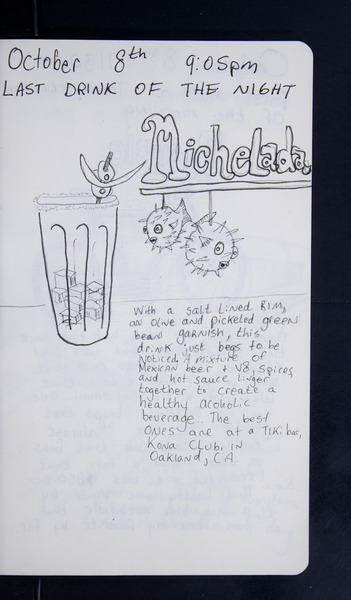 October 8th 9:05pm
LAST DRINK OF THE NIGHT
Michelada.
With a salt lined RIM,
an olive and pickeled green
bean garnish, this
drink just begs to be
noticed. A mixture of
Mexican beer + V8, spices,
and hot sauce linger
together to create a
healthy acoholic
beverage.. The best
ONES are at a Tiki bar,
Kona Club, in
Oakland, CA.